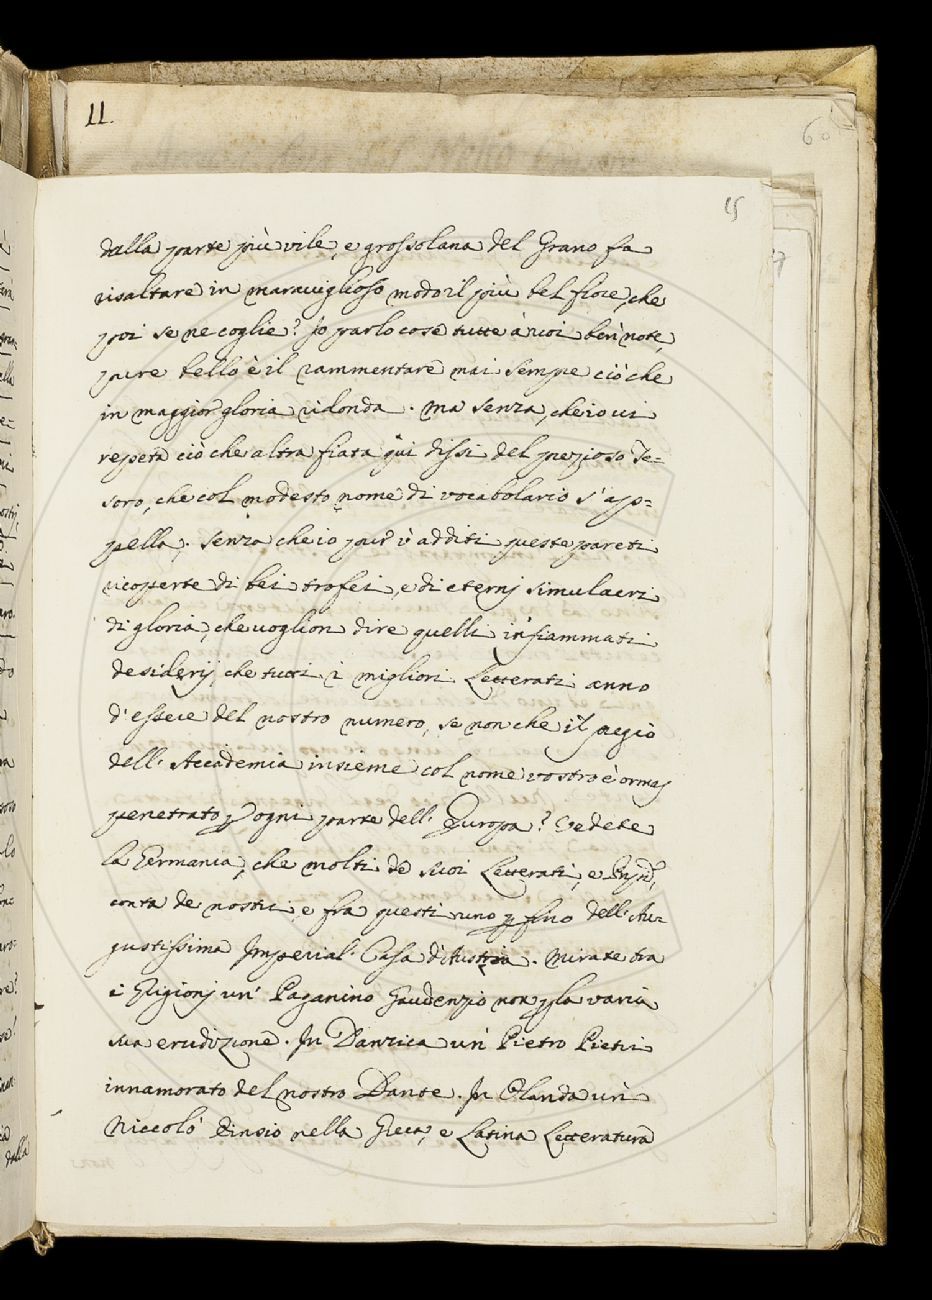 11.
60
15
dalla parte più vile, e grossolana del Grano fa
risaltare in maraviglioso modo il più bel fiore, che
poi se ne coglie? Io parlo cose tutte à voi ben note,
pure bello è il rammentare mai sempre ciò che
in maggior gloria ridonda. Ma senza, che io vi
repeta ciò che altra fiata qui dissi del prezioso Te=
soro, che col modesto nome di vocabolario s'ap=
pella; senza che io pur v'additi queste pareti
ricoperte di bei trofei, e di eternj simulacri
di gloria, che voglion dire quelli infiammati
desiderij che tutti i migliori Letterati anno
d'essere del nostro numero, se non che il pregio
dell'Accademia insieme col nome vostro è ormaj
penetrato p ogni parte dell'Europa? Vedete
la Germania, che molti de suoi Letterati, e
conta de nostri, e fra questi uno p fino dell'Au-
gustissima Imperial' Casa d'Austria. Mirate tra
i Grigionj un' Paganino Gaudenzio non p la varia
sua erudizione. In Danzica un' Pietro Pietri
innamorato del nostro Dante. In Olanda un'
Niccolò Einsio nella Greca, e Latina Letteratura
dalla